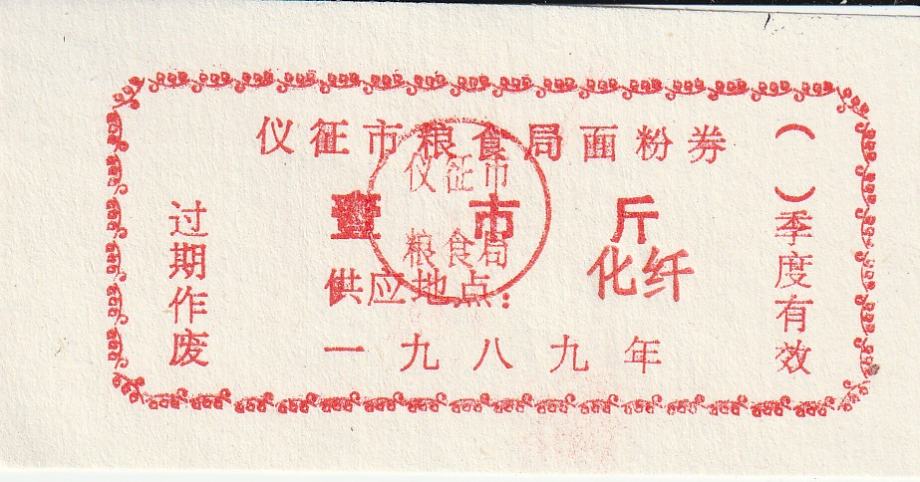 仪征市粮食局面粉券
壹市斤
供应地点：化纤
一九八九年
过期作废
（ ）季度有效
仪征市
粮食局